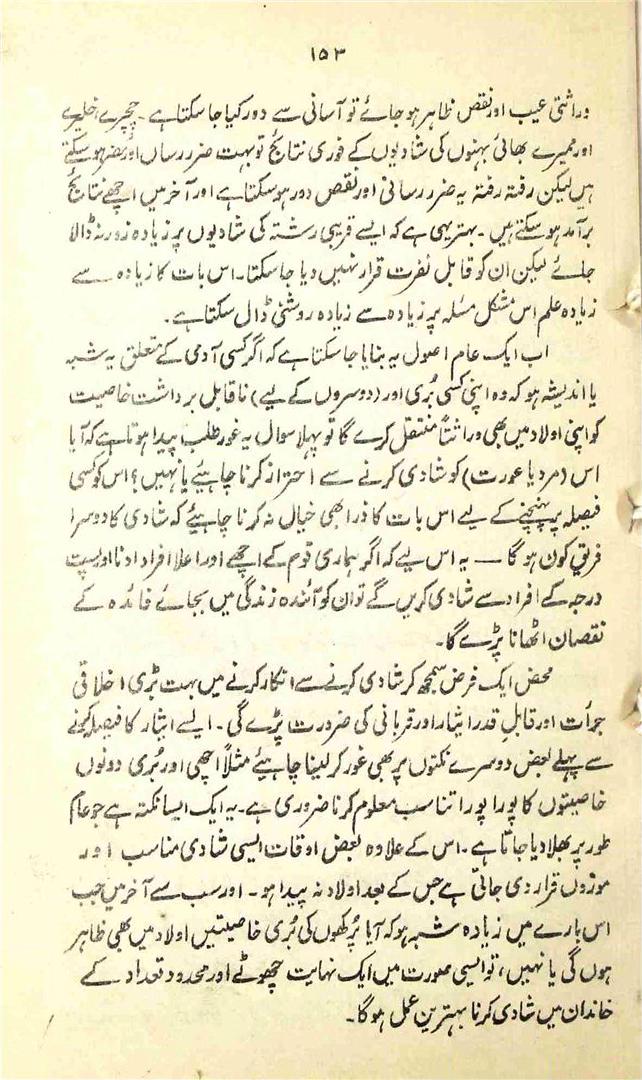 ۱۵۳
وراثتی عیب اور نقص ظاہر ہو جائے تو آسانی سے دور کیا جا سکتا ہے۔ چچیرے، خلیرے
اور ممیرے بھائی بہنوں کی شادیوں کے فوری نتائج تو بہت ضرر رساں اور مضر ہو سکتے
ہیں لیکن رفتہ رفتہ یہ ضرر رسانی اور نقص دور ہو سکتا ہے اور آخر میں اچھے نتائج
برآمد ہو سکتے ہیں۔ بہتر یہی ہے کہ ایسے قریبی رشتہ کی شادیوں پر زیادہ زور نہ ڈالا
جائے لیکن ان کو قابل نفرت قرار نہیں دیا جا سکتا۔ اس بات کا زیادہ سے
زیادہ علم اس مشکل مسئلہ پر زیادہ سے زیادہ روشنی ڈال سکتا ہے۔
اب ایک عام اصول یہ بنایا جا سکتا ہے کہ اگر کسی آدمی کے متعلق یہ شبہ
یا اندیشہ ہو کہ وہ اپنی کسی بُری اور (دوسروں کے لیے) ناقابل برداشت خاصیت
کو اپنی اولاد میں بھی وراثتاً منتقل کرے گا تو پہلا سوال یہ غور طلب پیدا ہوتا ہے کہ آیا
اس (مرد یا عورت) کو شادی کرنے سے احتراز کرنا چاہیئے یا نہیں؟ اس کو کسی
فیصلہ پر پہنچنے کے لیے اس بات کا ذرا بھی خیال نہ کرنا چاہیئے کہ شادی کا دوسرا
فریق کون ہو گا — یہ اس لیے کہ اگر ہماری قوم کے اچھے اور اعلا افراد ادنا اور پست
درجہ کے افراد سے شادی کریں گے تو ان کو آئندہ زندگی میں بجائے فائدہ کے
نقصان اٹھانا پڑے گا۔
محض ایک فرض سمجھ کر شادی کرنے سے انکار کرنے میں بہت بڑی اخلاقی
جرأت اور قابلِ قدر ایثار اور قربانی کی ضرورت پڑے گی۔ ایسے ایثار کا فیصلہ کرنے
سے پہلے بعض دوسرے نکتوں پر بھی غور کر لینا چاہیئے مثلاً اچھی اور بُری دونوں
خاصیتوں کا پورا پورا تناسب معلوم کرنا ضروری ہے۔ یہ ایک ایسا نکتہ ہے جو عام
طور پر بھلا دیا جاتا ہے۔ اس کے علاوہ بعض اوقات ایسی شادی مناسب اور
موزوں قرار دی جاتی ہے جس کے بعد اولاد نہ پیدا ہو۔ اور سب سے آخر میں جب
اس بارے میں زیادہ شبہ ہو کہ آیا پُرکھوں کی بُری خاصیتیں اولاد میں بھی ظاہر
ہوں گی یا نہیں، تو ایسی صورت میں ایک نہایت چھوٹے اور محدود تعداد کے
خاندان میں شادی کرنا بہترین عمل ہو گا۔